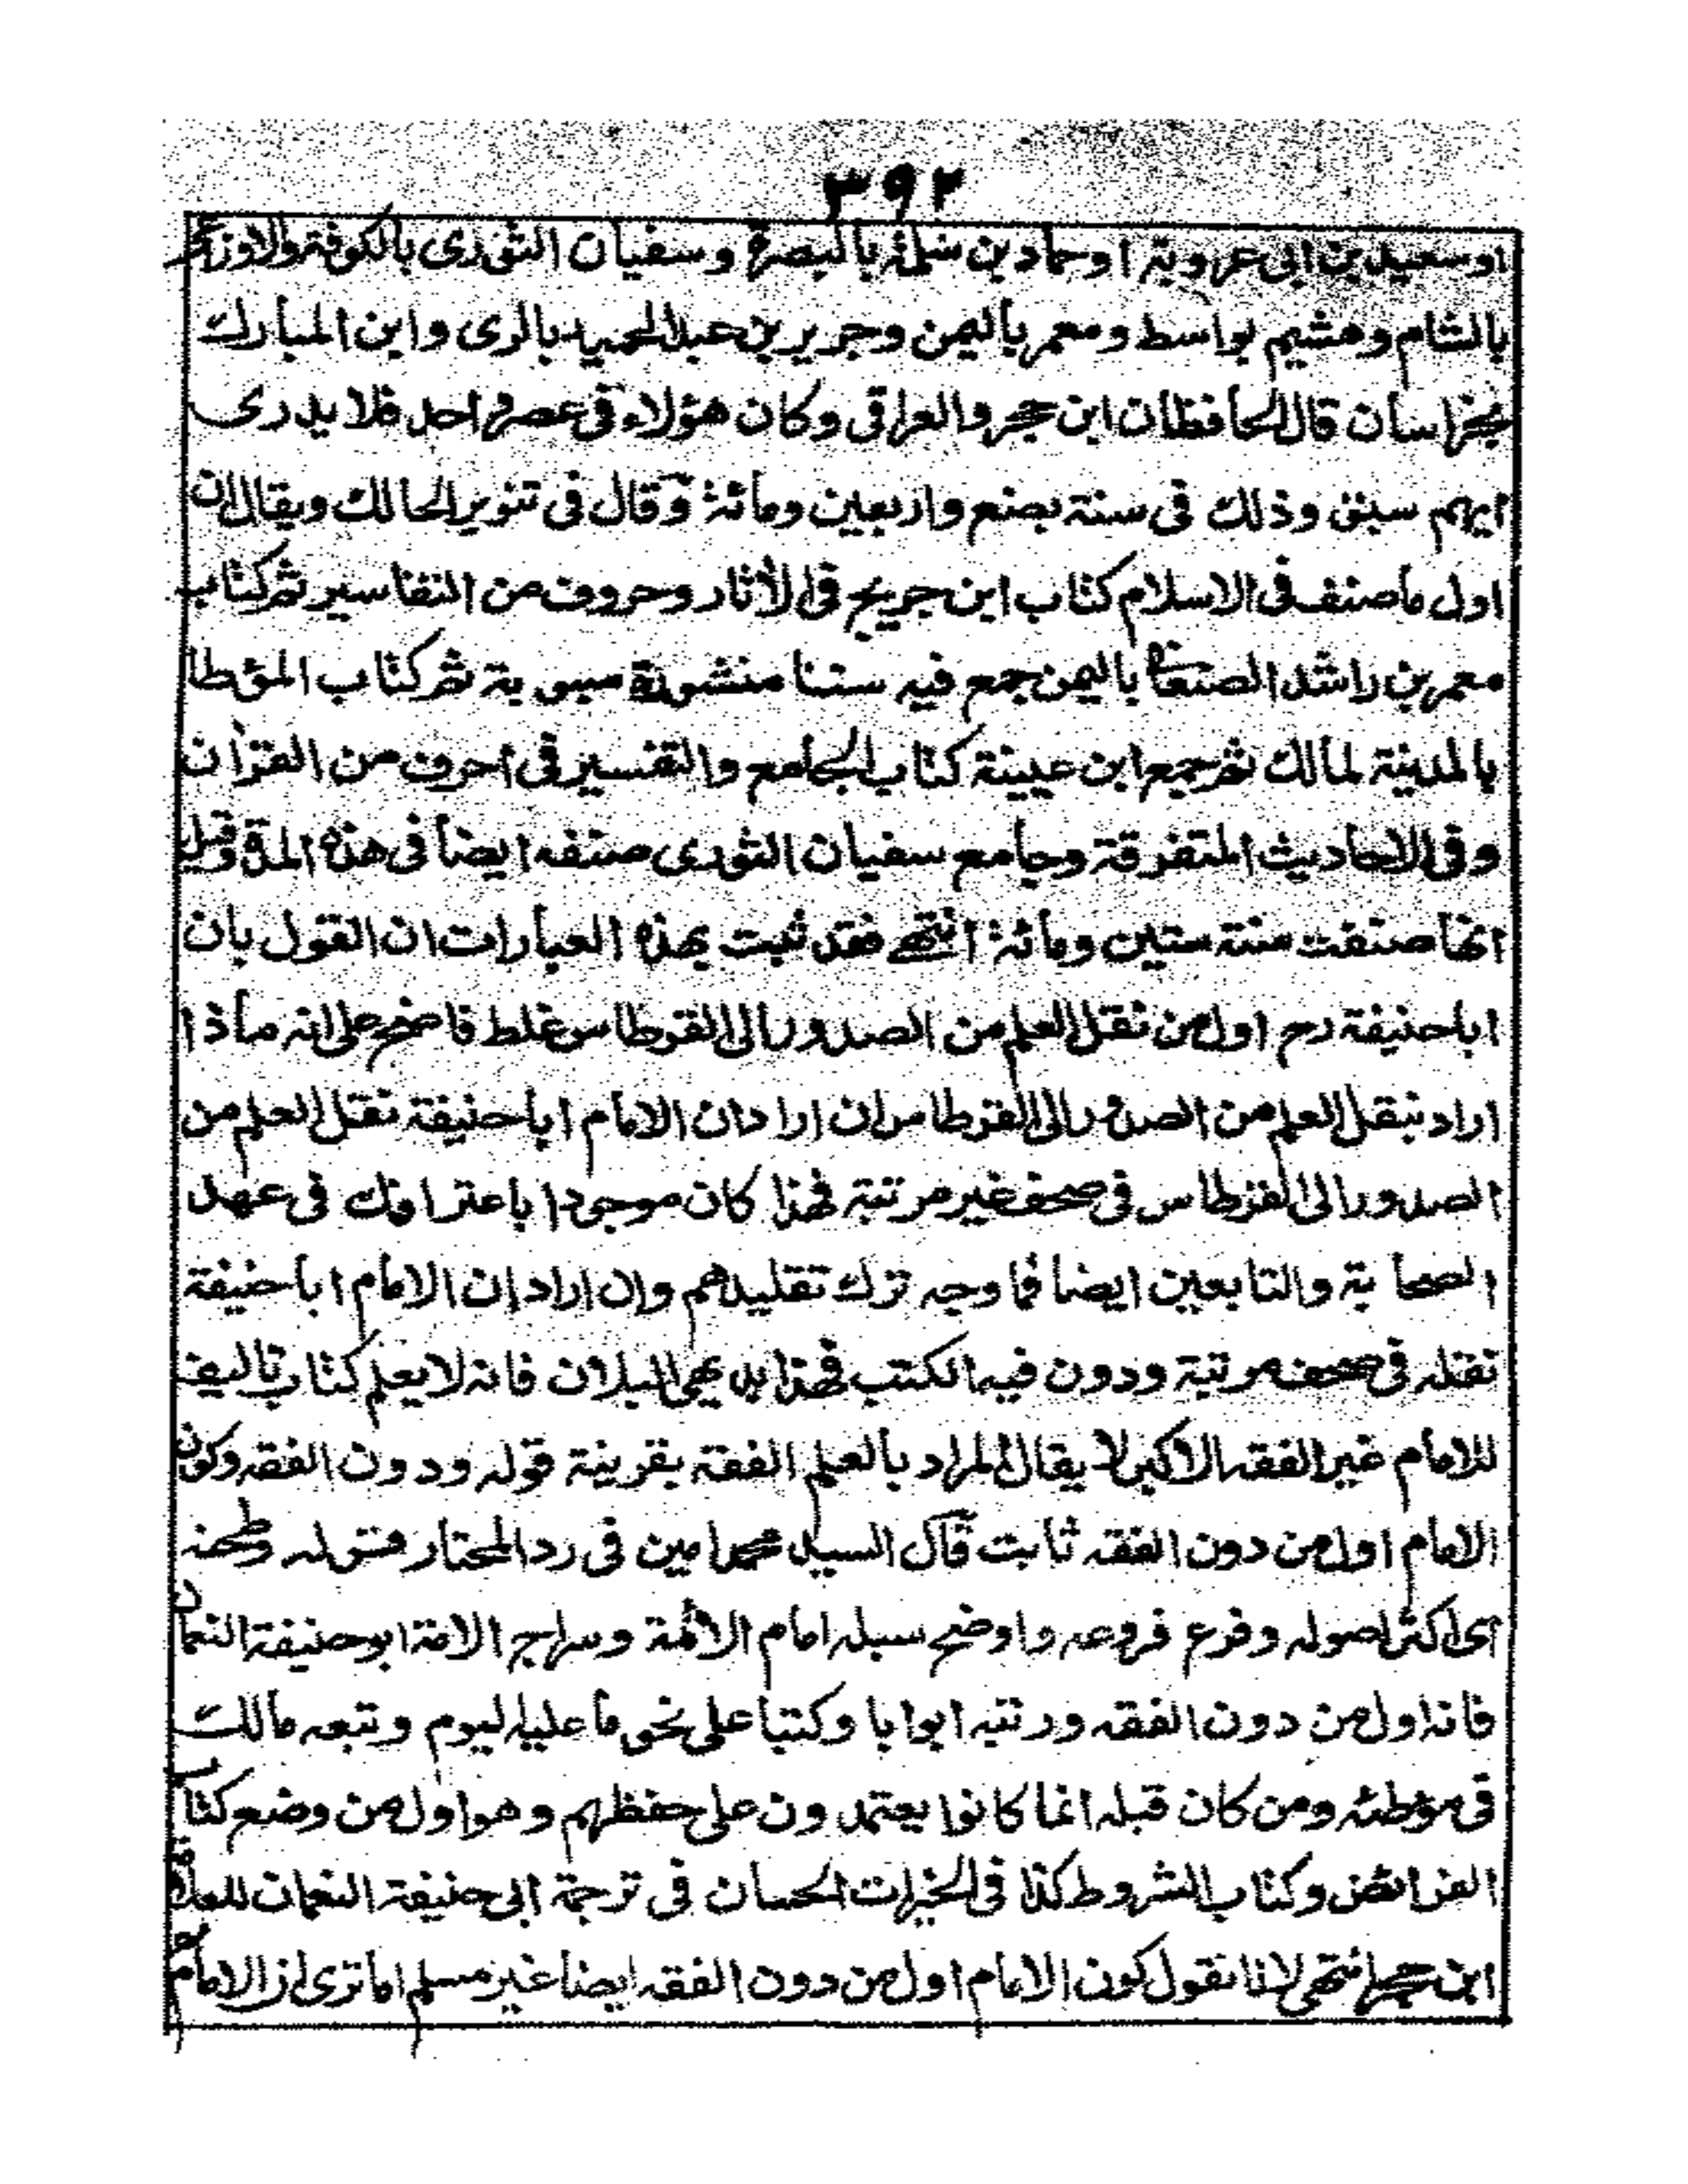 ٣٩٢
او سعيد بن ابى عروبة او حماد بن سلمة بالبصرة وسفيان الثورى بالكوفة والاوزاعى
بالشام وهشيم بواسط ومعمر باليمن وجرير بن عبد الحميد بالرى وابن المبارك
بخراسان قال الحافظان ابن حجر والعراقى وكان هؤلاء فى عصر واحد فلا يدرى
ايهم سبق وذلك فى سنة بضع واربعين ومائة وقال فى تنوير الحالك ويقال ان
اول ما صنف فى الاسلام كتاب ابن جريج فى الأثار وحروف من التفاسير ثم كتاب
معمر بن راشد الصنعانى باليمن جمع فيه سننا منشورة مبوبة ثم كتاب المؤطا
بالمدينة لمالك ثم جمع ابن عيينة كتاب الجامع والتفسير فى أحرف من القرأن
وفى الاحاديث المتفرقة وجامع سفيان الثورى صنفه ايضا فى هذه المدة وقيل
انها صنفت سنة ستين ومائة انتهى فقد ثبت بهذه العبارات ان القول بان
ابا حنيفة رح اول من نقل العلم من الصدور الى القرطاس غلط فاضح على انه ماذا
اراد بنقل العلم من الصدور الى القرطاس ان اراد ان الامام ابا حنيفة نقل العلم من
الصدور الى القرطاس فى صحف غير مرتبة فهذا كان موجودا باعترافك فى عهد
الصحابة والتابعين ايضا فما وجه ترك تقليدهم وان اراد ان الامام ابا حنيفة
نقله فى صحف مرتبة ودون فيه الكتب فهذا بديهى البطلان فانه لا يعلم كتاب تاليف
للامام غير الفقه الاكبر لا يقال المراد بالعلم الفقه بقرينة قوله ودون الفقه وكون
الامام اول من دون الفقه ثابت قال السيد محمد امين فى رد المحتار قوله وطحنه
اى اكثر اصوله وفرع فروعه واوضح سبله امام الأئمة وسراج الامة ابو حنيفة النعمان
فانه اول من دون الفقه ورتبه ابوابا وكتبا على نحو ما عليه اليوم وتبعه مالك
فى مؤطئه ومن كان قبله انما كانوا يعتمدون على حفظهم وهو اول من وضع كتاب
الفرائض وكتاب الشروط كذا فى الخيرات الحسان فى ترجمة ابى حنيفة النعمان للعلامة
ابن حجر انتهى لانا نقول كون الامام اول من دون الفقه ايضا غير مسلم اما ترى ان الامام